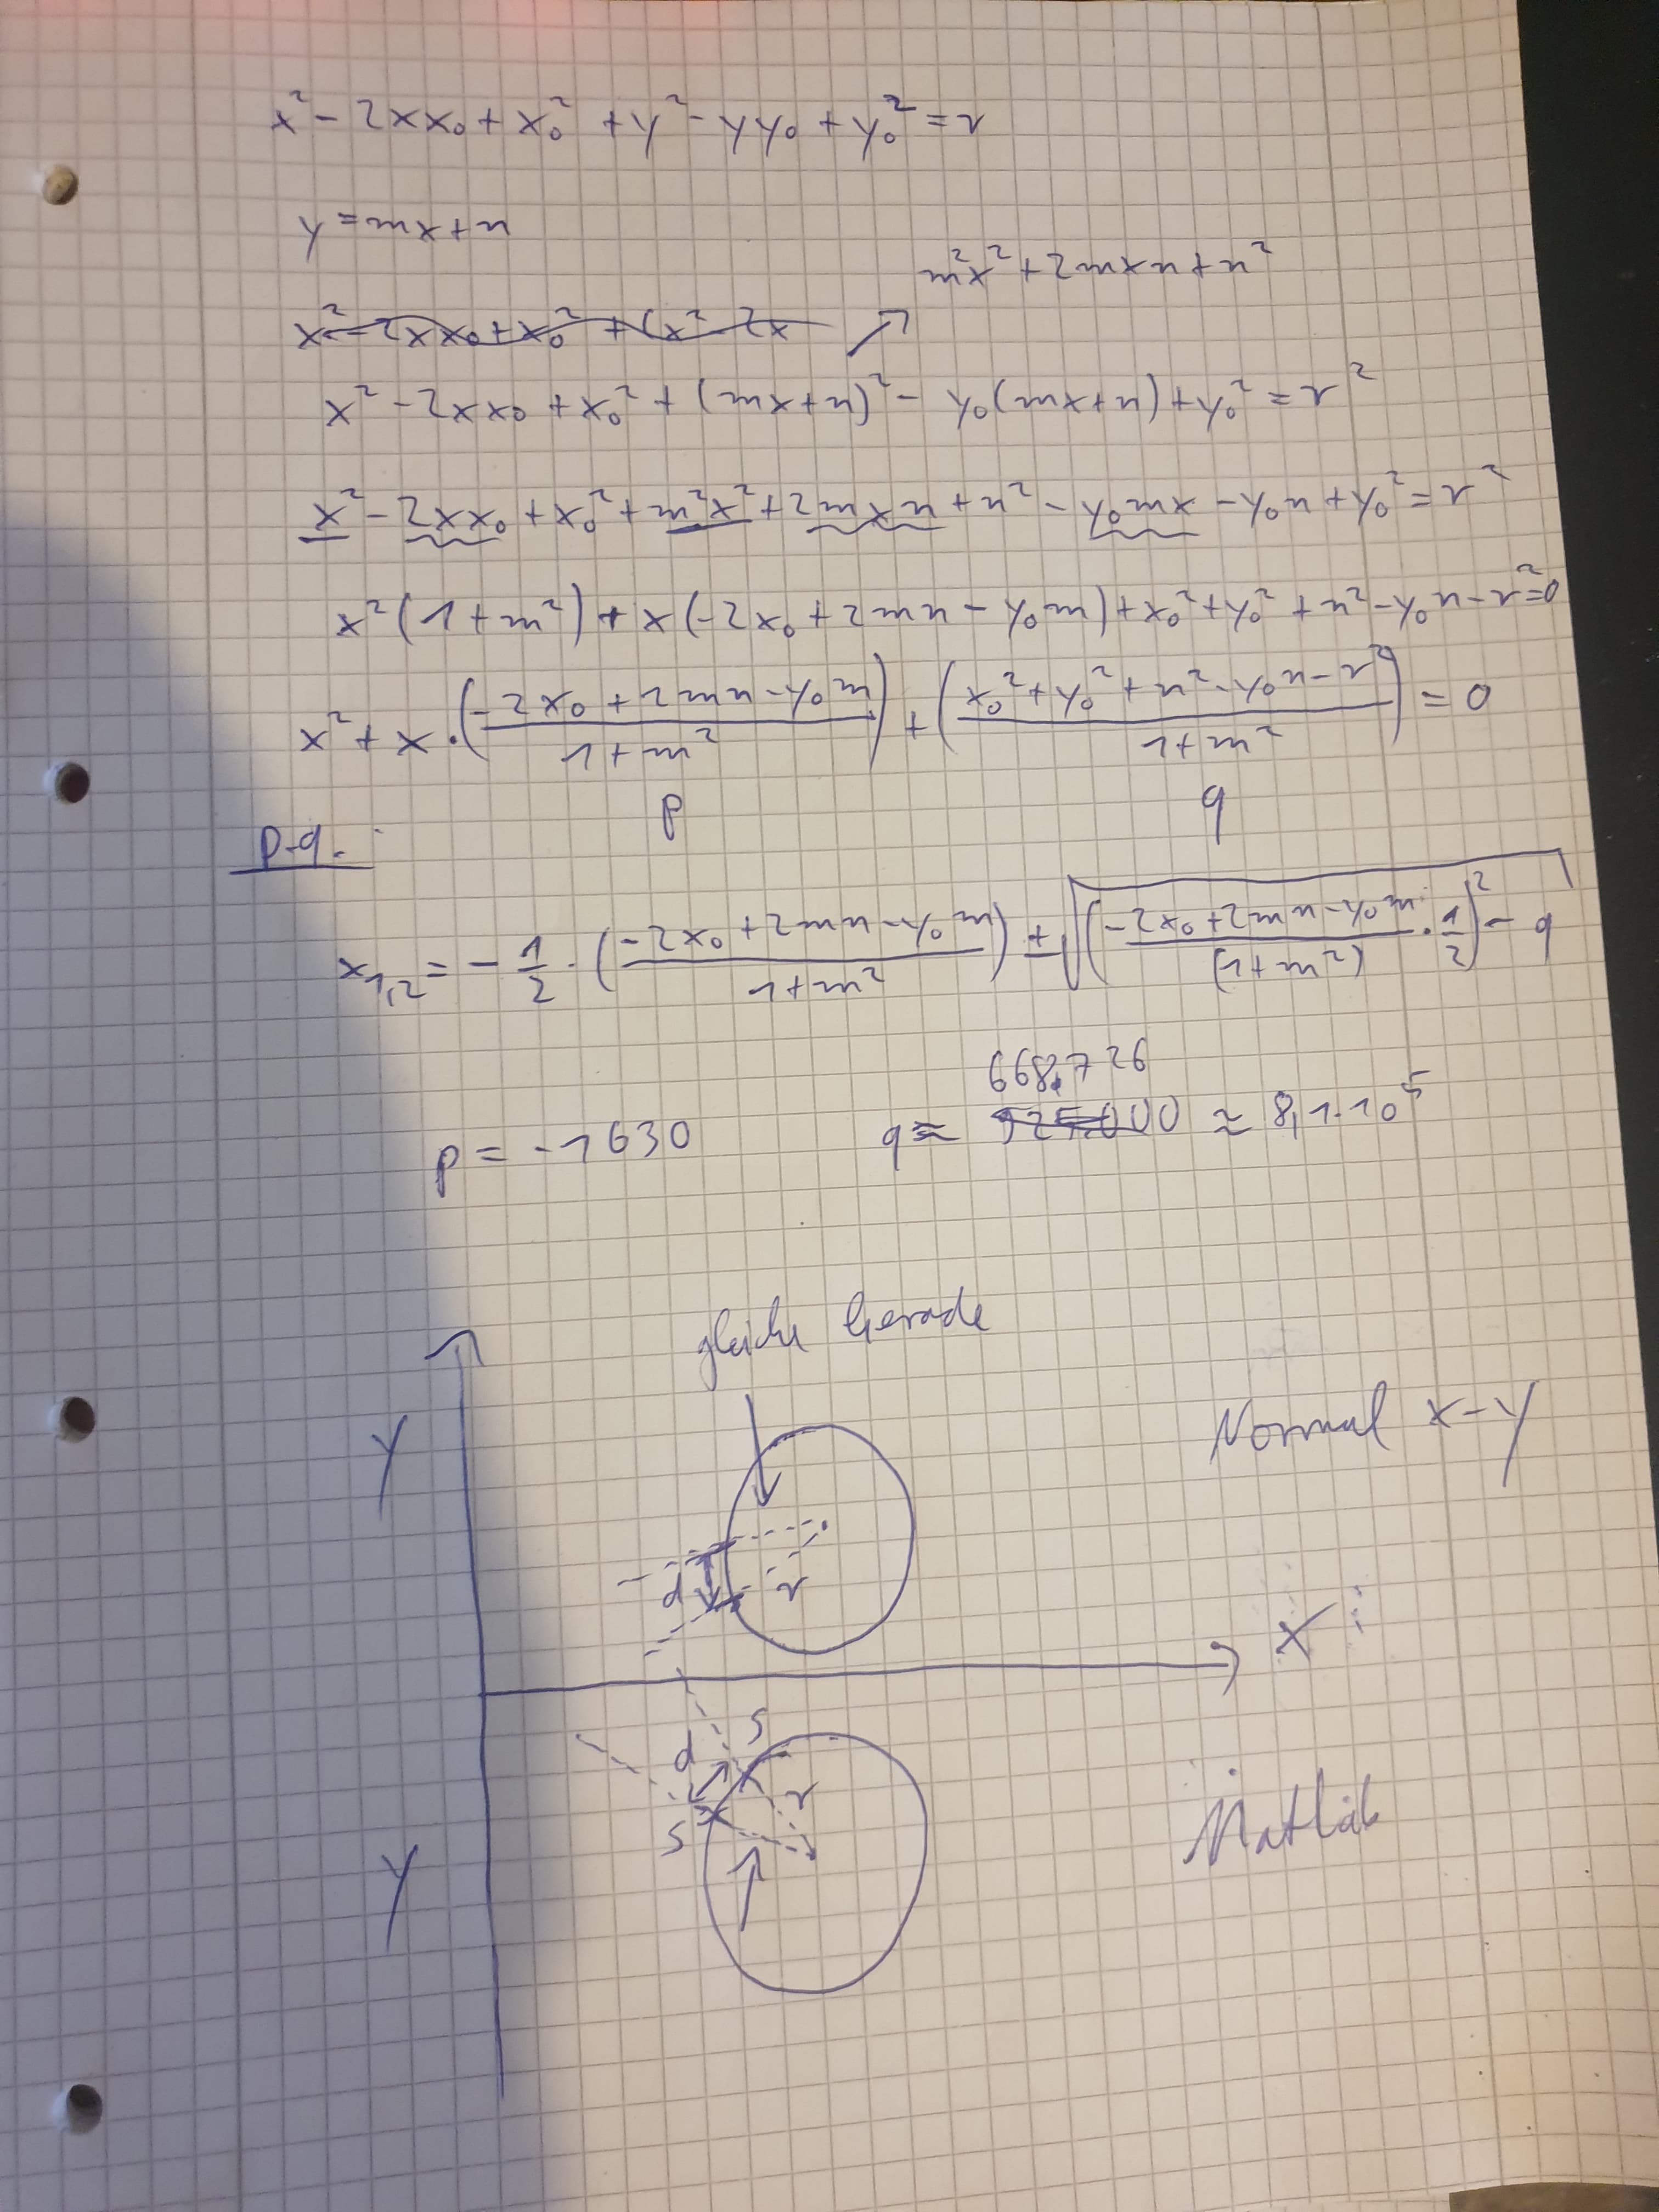 x² - 2xx₀ + x₀² + y² - yy₀ + y₀² = r
y = mx+n
m²x² + 2mxn + n²
x² - 2xx₀ + x₀² + (x² - 2x
x² - 2xx₀ + x₀² + (mx+n)² - y₀(mx+n) + y₀² = r²
x² - 2xx₀ + x₀² + m²x² + 2mxn + n² - y₀mx - y₀n + y₀² = r²
x²(1+m²) + x(-2x₀ + 2mn - y₀m) + x₀² + y₀² + n² - y₀n - r² = 0
x² + x · ((-2x₀ + 2mn - y₀m)/(1+m²)) + ((x₀² + y₀² + n² - y₀n - r²)/(1+m²)) = 0
p q
p-q-
x₁,₂ = - 1/2 · ((-2x₀ + 2mn - y₀m)/(1+m²)) ± √(((-2x₀ + 2mn - y₀m)/(1+m²) · 1/2)² - q)
p = -1630 q ≈ 925.000 ≈ 8,1·10⁵
gleiche Gerade
Normal x-y
y
d r
x
S
d r
S
Matlab
y